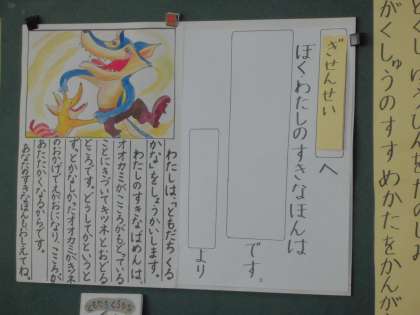 がくしゅうのすすめかたをかんが
ぎせんせい
へ
ぼくわたしのすきなほんは
です。
より
わたしは、「ともだちくる
かな」をしょうかいします。
わたしのすきなばめんは、
オオカミがこころがもどっている
ことにきづいてキツネとおどる
ところです。どうしてかというと
ずっとかなしかったオオカミがキツネ
のおかげでえがおになり、こころが
あたたかくなるからです。
あなたのすきなほんもおしえてね。